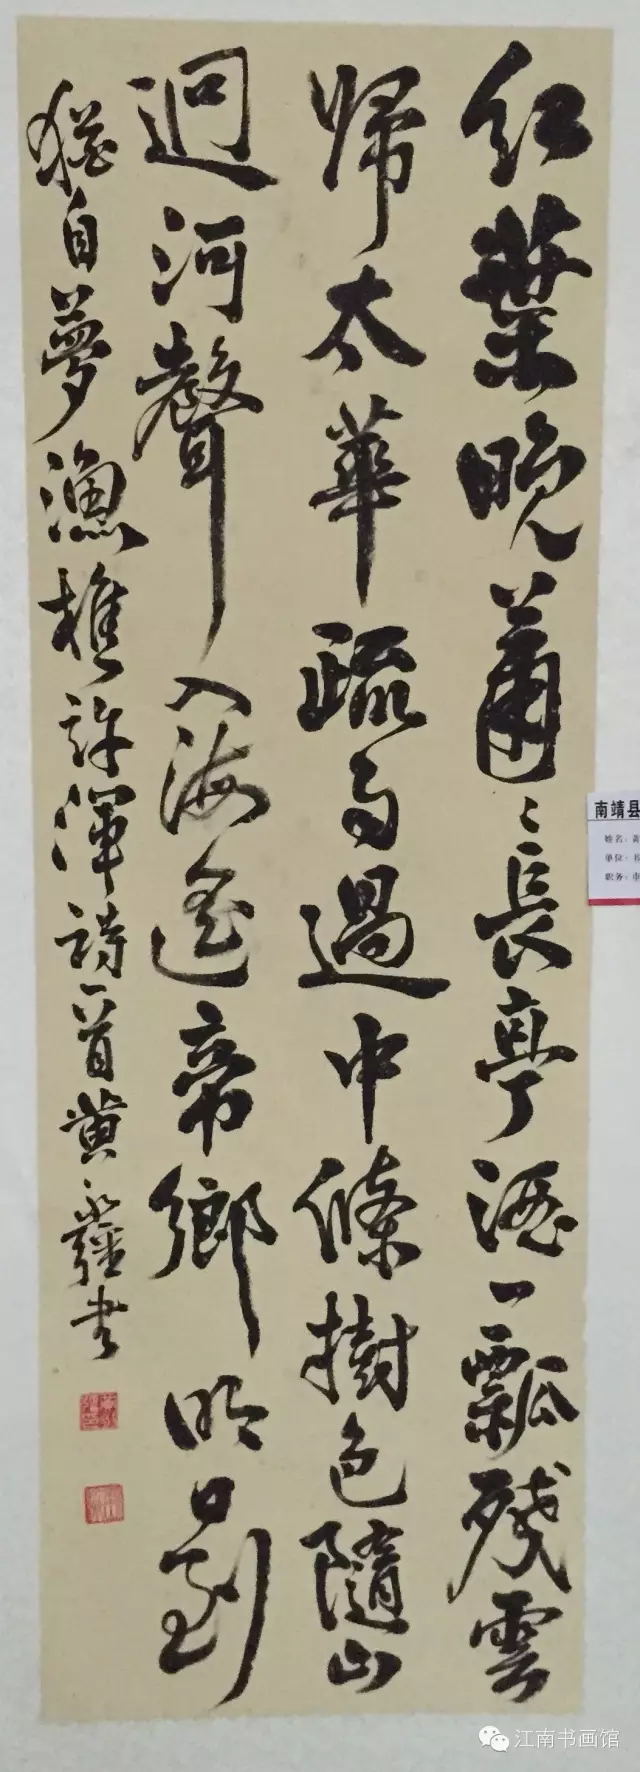 红葉晚蕭〻長亭酒一瓢殘雲
歸太華疏雨過中條樹色隨山
迥河聲入海遙帝鄉明日到
猶自夢漁樵許渾詩一首黄永疆書
南靖县
姓名：黄
单位：
职务：
江南书画馆